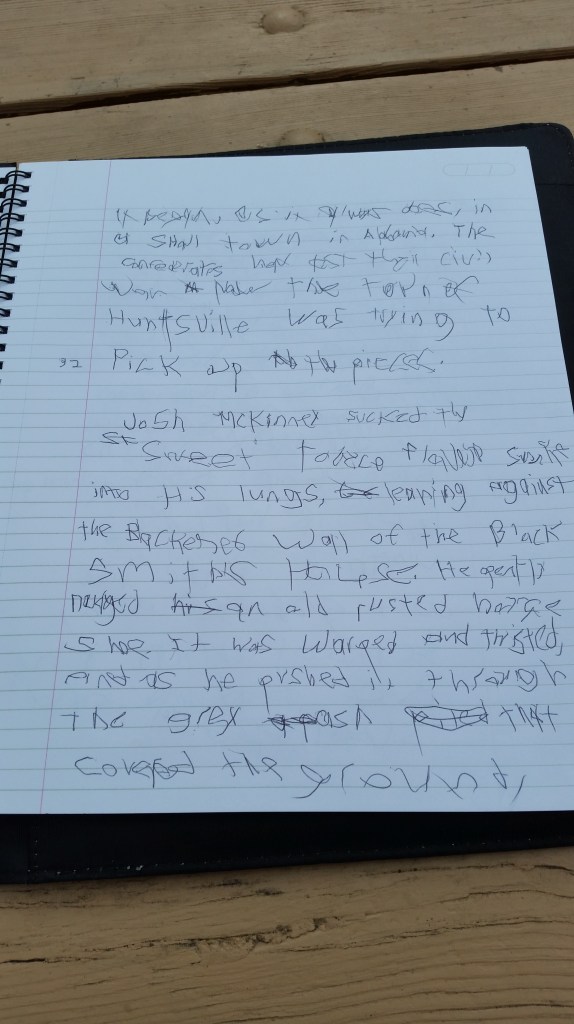 in
a small town in Alabama. The
confederates had lost their civil
War the town of
Huntsville was trying to
Pick up the pieces.
Josh McKinney sucked the
Sweet tobaco flavored smoke
into His lungs, leaning against
the Blackened Wall of the Black
smiths House. He gently
nudged an old rusted horse
shoe. It was Warped and twisted,
and as he pushed it through
the grey ash that
covered the ground,